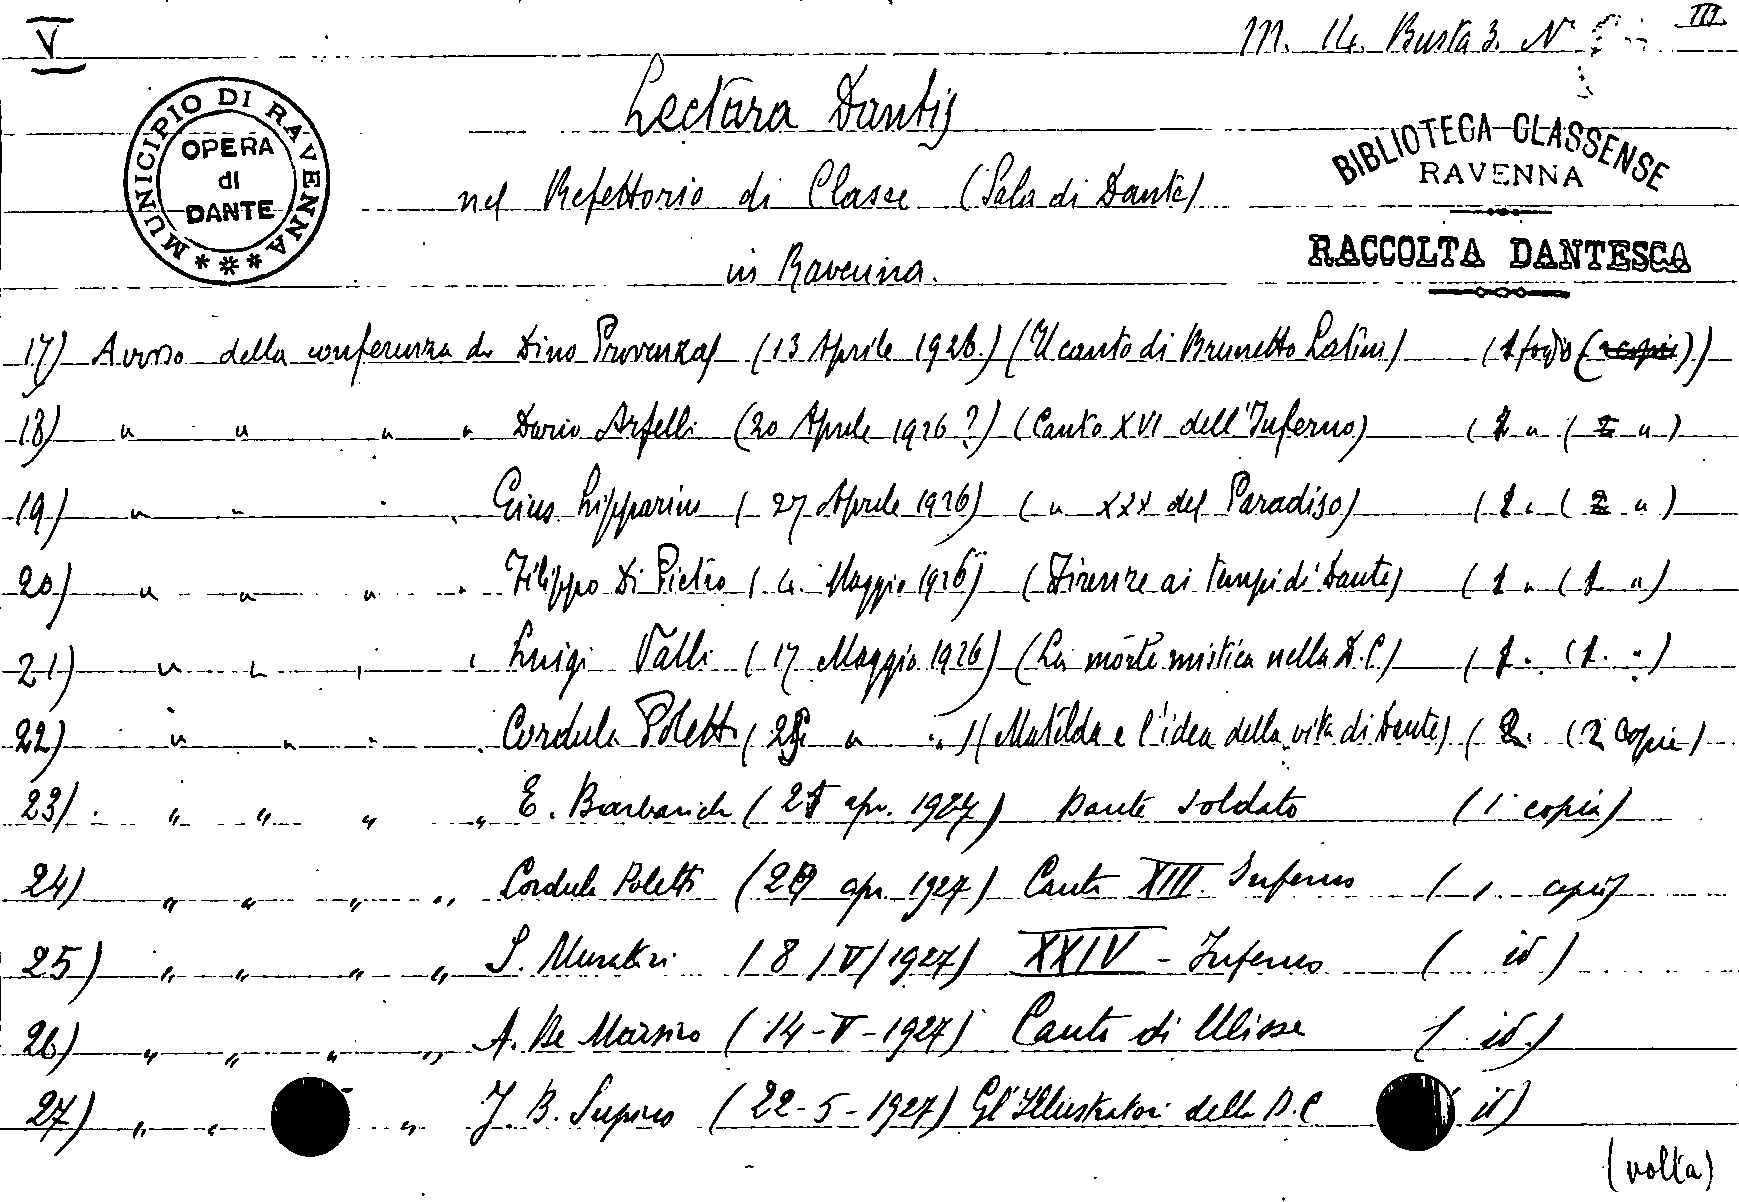 V
M. 14. Busta 3. N
III
MUNICIPIO DI RAVENNA
OPERA
di
DANTE
Lectura Dantis
BIBLIOTECA CLASSENSE
RAVENNA
nel Refettorio di Classe (Sala di Dante)
RACCOLTA DANTESCA
in Ravenna.
17) Avviso della conferenza di Dino Provenzal (13 Aprile 1926.) (Il canto di Brunetto Latini) (1 foglio (2 copie))
18) " " " " Dario Arfelli (20 Aprile 1926?) (Canto XVI dell'Inferno) (1 " (2 " )
19) " " " " Gius. Lipparini (27 Aprile 1926) ( " XXX del Paradiso) (1 " (2 " )
20) " " " " Filippo Di Pietro (4. Maggio 1926) (Firenze ai tempi di Dante) (1 " (1 " )
21) " " " " Luigi Valli (17 Maggio 1926) (La morte mistica nella D.C) (1 " (1. " )
22) " " " " Cordula Poletti (25 " " ) (Matilda e l'idea della vita di Dante) (2. (2 copie)
23) " " " " E. Barbarich (21 apr. 1927) Dante soldato (1 copia)
24) " " " " Cordula Poletti (29 apr. 1927) Canto XIII. Inferno (1. copia)
25) " " " " S. Muratori (8/V/1927) XXIV - Inferno ( id )
26) " " " " A. De Marsico (14-V-1927) Canto di Ulisse ( id.)
27) " " " J. B. Supino (22-5-1927) Gl'Illustratori della D.C ( id)
(volta)